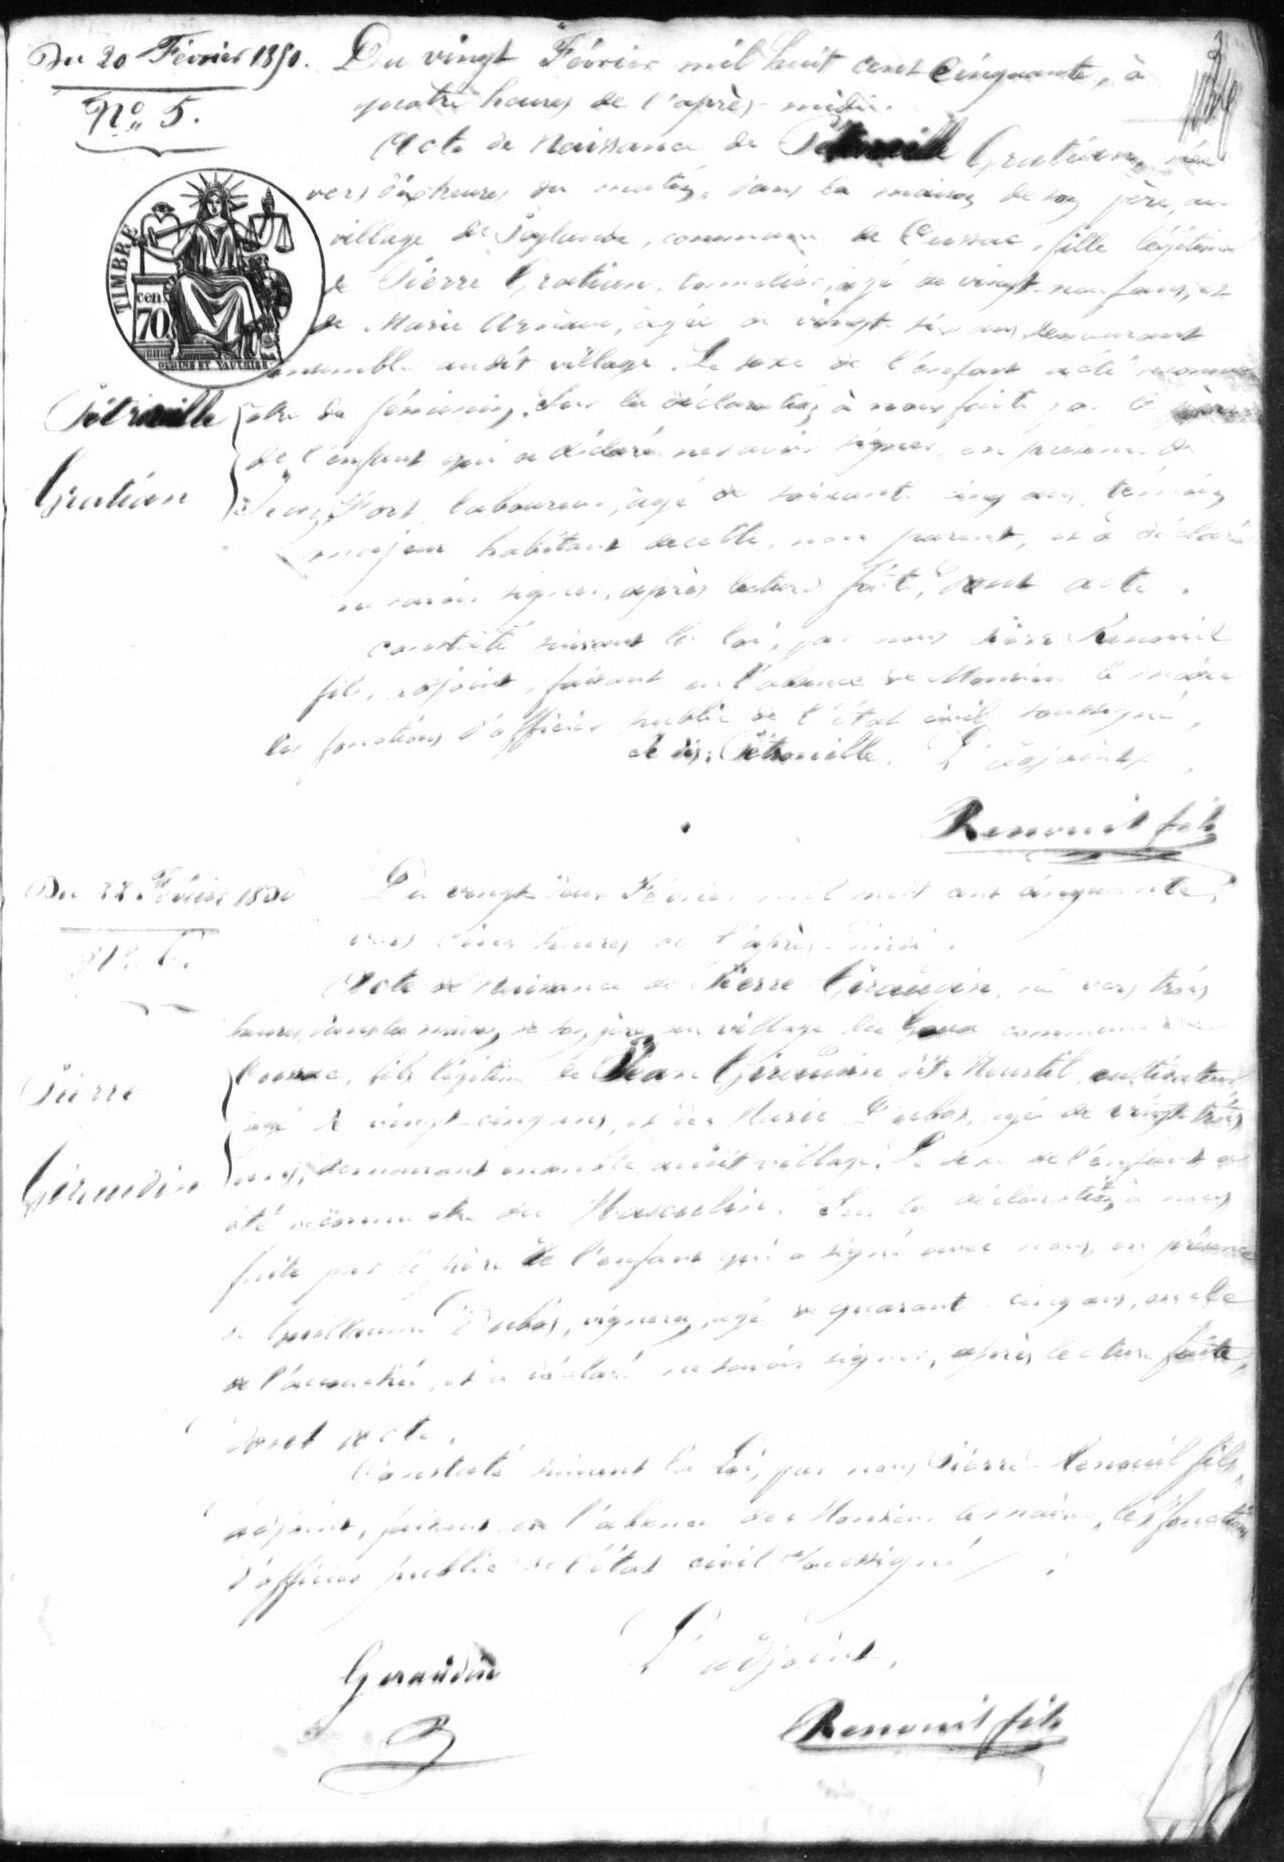 Du 20 Février 1850.
N.° 5.
Du vingt Février mil huit cent cinquante, à
quatre heures de l'après-midi.
Acte de Naissance de Gratian, née
vers dix heures du matin, dans la maison de son père, au
village de commune de Cussac, fille légitime
TIMBRE
cen.
70
OUDINE ET VAUTHIER
de Pierre Gratian, tonnelier, âgé de vingt-neuf ans, et
de Marie Arnaud, âgée de vingt-six ans, demeurant
ensemble audit village. Le sexe de l'enfant a été reconnu
Pétronille
Gratian
être du féminin. Sur la déclaration à nous faite par le père
de l'enfant qui a déclaré ne savoir signer, en présence de
Jean laboureur, âgé de soixante-cinq ans, témoin
majeur habitant decette, non parent, et a déclaré
ne savoir signer, après lecture faite, dont acte.
constaté suivant la loi, par nous Pierre Renouil
fils, adjoint, faisant en l'absence de Monsieur le maire
les fonctions d'officier public de l'état civil soussigné,
Je dis: Pétronille. L'adjoint,
Renouil fils
Du 22 Février 1850
N.° 6.
Du vingt deux Février mil huit cent cinquante,
vers cinq heures de l'après-midi.
Acte de Naissance de Pierre Giraudin, né vers trois
heures, dans la maison de son père, au village du commune de
Pierre
Giraudin
Cussac, fils légitime de Jean Giraudin dit cultivateur,
âgé de vingt-cinq ans, et de Marie Dubos, âgée de vingt-trois
ans, demeurant ensemble audit village. Le sexe de l'enfant a
été reconnu être du Masculin. Sur la déclaration à nous
faite par le père de l'enfant qui a signé avec nous, en présence
de Guillaume Dubos, vigneron, âgé de quarante-cinq ans, oncle
de l'accouchée, et a déclaré ne savoir signer, après lecture faite,
dont acte.
Constaté suivant la loi, par nous Pierre Renouil fils,
adjoint, faisant en l'absence de Monsieur le maire, les fonctions
d'officier public de l'état civil soussigné
Geraudin
L'adjoint,
Renouil fils